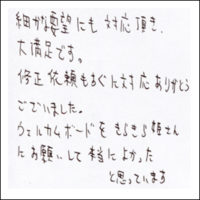 細かな要望にも対応頂き、
大満足です。
修正依頼もすぐに対応ありがとう
ございました。
ウェルカムボードをきらきら姫さん
にお願いして本当によかった
と思っています